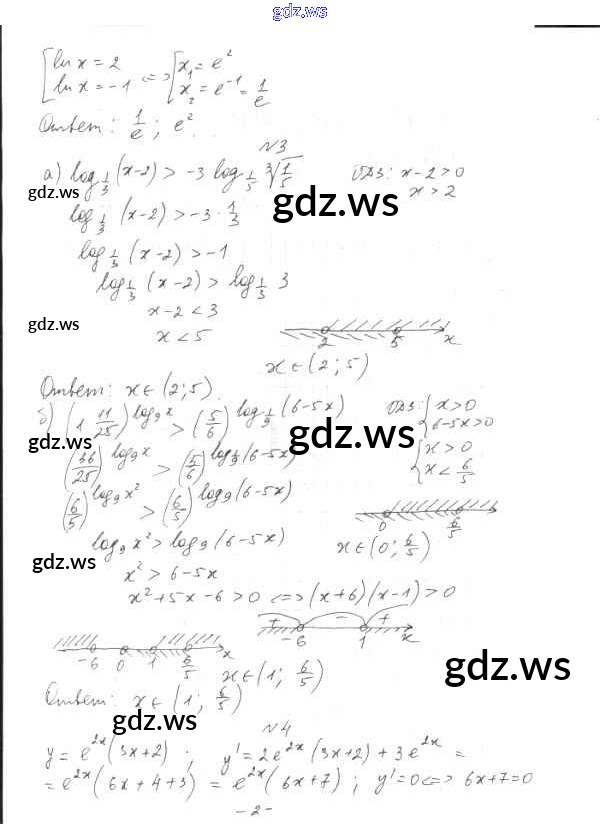 gdz.ws
[ln x = 2
ln x = -1 <=> [x₁ = e²
x₂ = e⁻¹ = 1/e
Ответ: 1/e ; e².
N3
а) log_{1/3} (x-2) > -3 log_{1/5} ∛(1/5) ОДЗ: x-2>0
gdz.ws
x > 2
gdz.ws
log_{1/3} (x-2) > -3 · 1/3
log_{1/3} (x-2) > -1
log_{1/3} (x-2) > log_{1/3} 3
x-2 < 3
gdz.ws
x < 5
2 5 x
x ∈ (2; 5)
Ответ: x ∈ (2; 5).
б) (1 11/25)^{log₉ x} > (5/6)^{log_{1/9} (6-5x)} ОДЗ: {x > 0
6-5x > 0
gdz.ws
gdz.ws
(36/25)^{log₉ x} > (5/6)^{log_{1/9} (6-5x)} {x > 0
x < 6/5
(6/5)^{log₉ x²} > (6/5)^{log₉ (6-5x)}
0 6/5
log₉ x² > log₉ (6-5x) x ∈ (0; 6/5)
gdz.ws
gdz.ws
x² > 6-5x
x² + 5x - 6 > 0 <=> (x+6)(x-1) > 0
+ - +
-6 1 x
-6 0 1 6/5 x
x ∈ (1; 6/5)
gdz.ws
Ответ: x ∈ (1; 6/5)
gdz.ws
N4
y = e^{2x} (3x+2) ; y' = 2e^{2x} (3x+2) + 3e^{2x} =
gdz.ws
= e^{2x} (6x+4+3) = e^{2x} (6x+7) ; y' = 0 <=> 6x+7=0
-2-